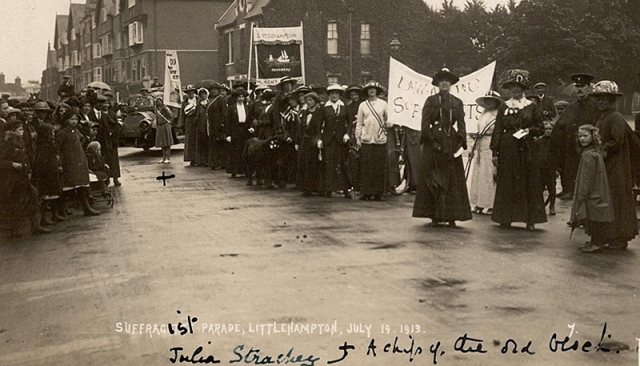 LITTLEHAMPTON
SUFFRAGist PARADE, LITTLEHAMPTON, JULY 19. 1913. 7.
Julia Strachey + A chip of the old block.